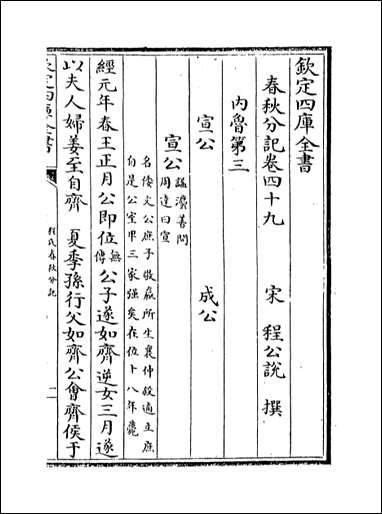 欽定四庫全書
春秋分記卷四十九
宋 程公說 撰
內魯第三
宣公 成公
宣公
諡濟善問
周達曰宣
名倭文公庶子敬嬴所生襄仲殺適立庶
自是公室卑三家強矣在位十八年薨
經元年春王正月公即位
無
傳
公子遂如齊逆女三月遂
以夫人婦姜至自齊 夏季孫行父如齊公會齊侯于
欽定四庫全書
程氏春秋分記